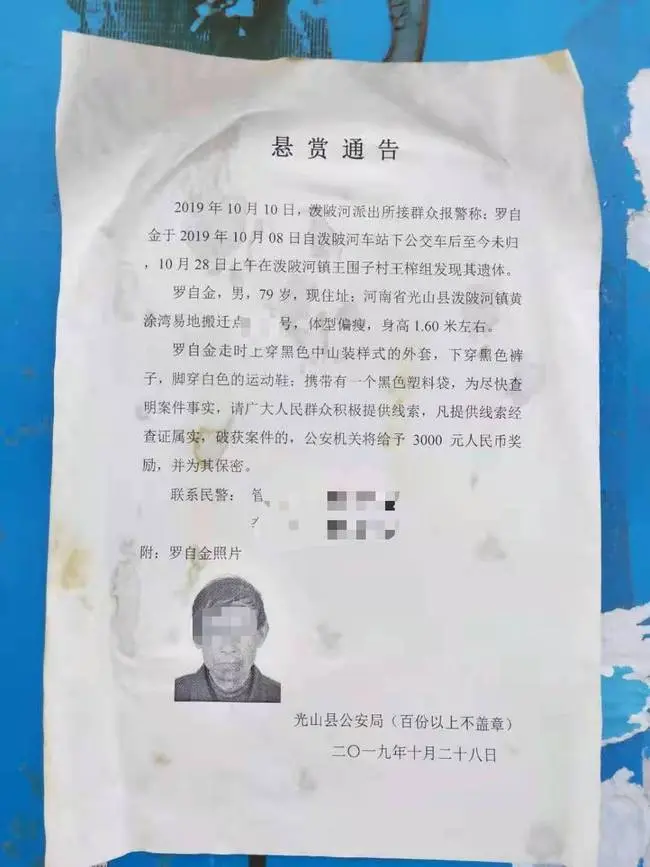 悬赏通告
2019年10月10日，泼陂河派出所接群众报警称：罗自
金于2019年10月08日自泼陂河车站下公交车后至今未归
，10月28日上午在泼陂河镇王围子村王榨组发现其遗体。
罗自金，男，79岁，现住址：河南省光山县泼陂河镇黄
涂湾易地搬迁点 号，体型偏瘦，身高1.60米左右。
罗自金走时上穿黑色中山装样式的外套，下穿黑色裤
子，脚穿白色的运动鞋；携带有一个黑色塑料袋，为尽快查
明案件事实，请广大人民群众积极提供线索，凡提供线索经
查证属实，破获案件的，公安机关将给予3000元人民币奖
励，并为其保密。
联系民警：
附：罗自金照片
光山县公安局（百份以上不盖章）
二〇一九年十月二十八日